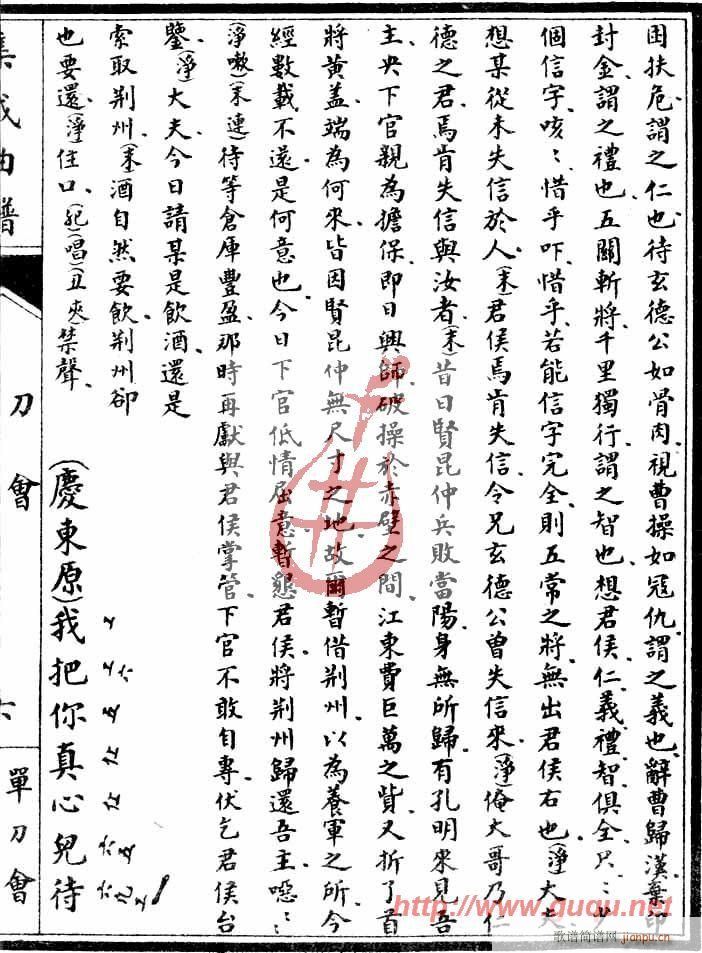 困扶危謂之仁也待玄德公如骨肉視曹操如寇仇謂之義也辭曹歸漢棄印
封金謂之禮也五關斬將千里獨行謂之智也想君侯仁義禮智俱全只：少
個信字咳：惜乎吓惜乎若能信字完全則五常之將無出君侯右也(淨)大夫
想某從未失信於人(末)君侯焉肯失信令兄玄德公曾失信來(淨)俺大哥乃仁
德之君焉肯失信與汝者(末)昔日賢昆仲兵敗當陽身無所歸有孔明來見吾
主央下官親為擔保即日興師破操於赤壁之間江東費巨萬之貲又折了首
將黃蓋端為何來皆因賢昆仲無尺寸之地故爾暫借荆州以為養軍之所今
經數載不還是何意也今日下官低情屈意暫懇君侯將荆州歸還吾主噁：
(淨嗽)(末連)待等倉庫豐盈那時再獻與君侯掌管下官不敢自專伏乞君侯台
鑒(淨)大夫今日請某是飲酒還是
索取荆州(末)酒自然要飲荆州卻
也要還(淨)住口(起)(唱)(丑夾)禁聲
(慶東原)我把你真心兒待
集成曲譜
刀會
六
單刀會
http://www.guqu.net
歌谱简谱网
jianpu.cn